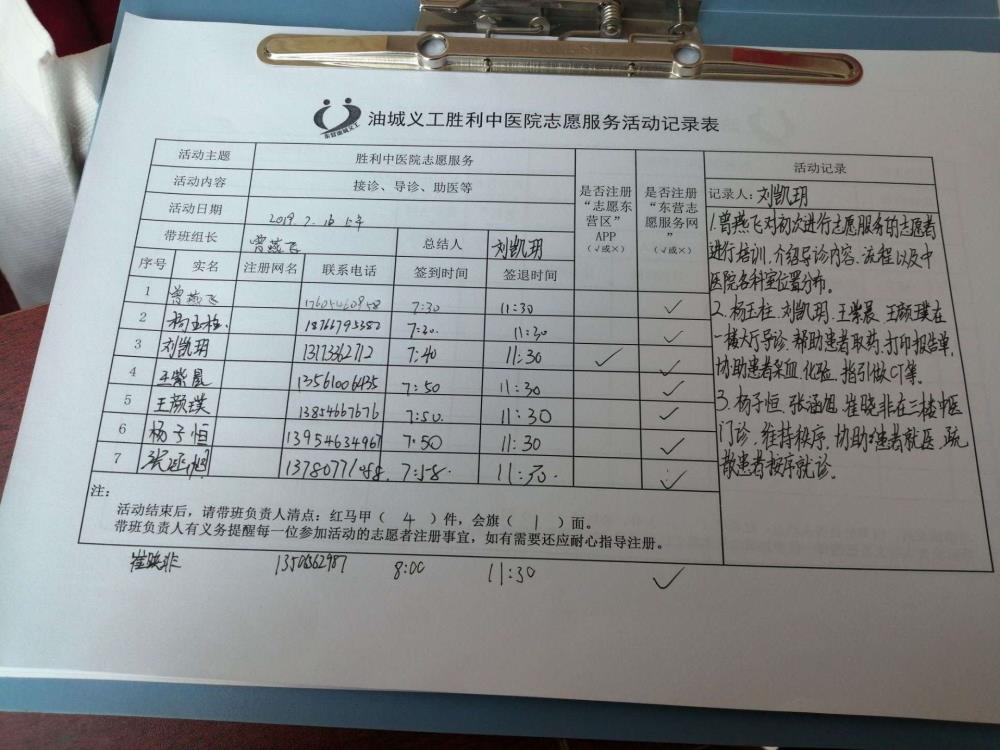 东营油城义工
油城义工胜利中医院志愿服务活动记录表
活动主题 胜利中医院志愿服务
活动内容 接诊、导诊、助医等
活动日期 2019.7.16 上午
带班组长 曾燕飞 总结人 刘凯玥
序号 实名 注册网名 联系电话 签到时间 签退时间
是否注册“志愿东营区”APP（√或×）
是否注册“东营志愿服务网”（√或×）
1 曾燕飞 17605460858 7:30 11:30 √
2 杨玉柱 18766795382 7:30. 11:30 √
3 刘凯玥 13173362712 7:40 11:30 √ √
4 王紫晨 13561006435 7:50 11:30 √
5 王颜璞 13854667676 7:50. 11:30 √
6 杨子恒 13954634967 7:50 11:30 √
7 张涵旭 7:58. 11:30. √
注：
活动结束后，请带班负责人清点：红马甲（ 4 ）件，会旗（ 1 ）面。
带班负责人有义务提醒每一位参加活动的志愿者注册事宜，如有需要还应耐心指导注册。
崔晓非 8:00 11:30 √
活动记录
记录人：刘凯玥
1.曾燕飞对初次进行志愿服务的志愿者
进行培训.介绍导诊内容.流程以及中
医院各科室位置分布。
2.杨玉柱.刘凯玥.王紫晨.王颜璞在
一楼大厅导诊.帮助患者取药.打印报告单.
协助患者采血.化验.指引做CT等。
3.杨子恒.张涵旭.崔晓非在三楼中医
门诊.维持秩序.协助患者就医.疏
散患者按序就诊。